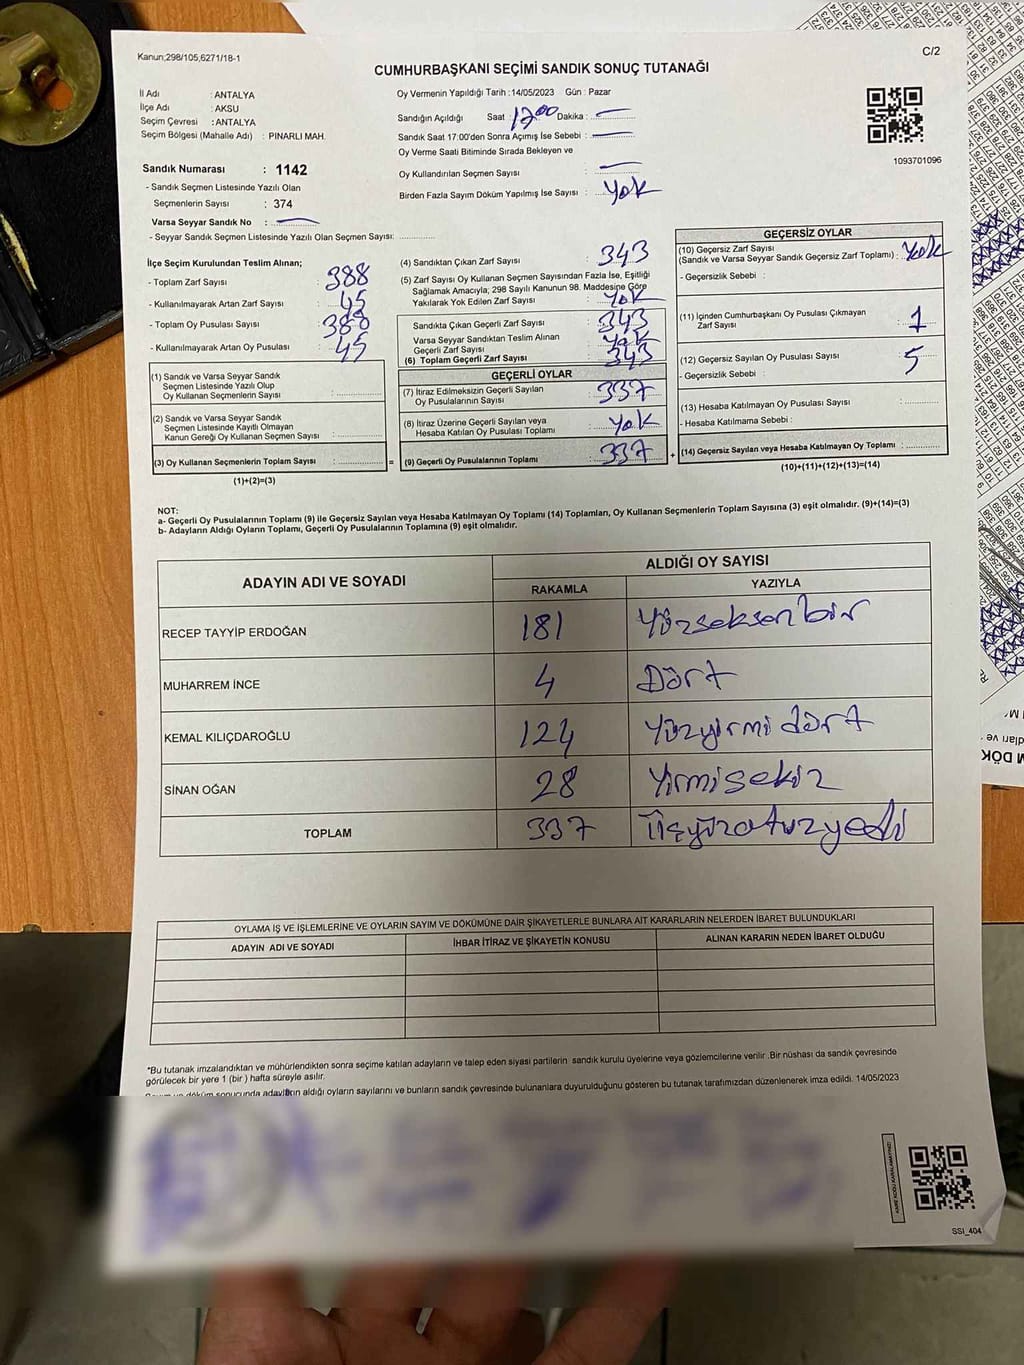 Kanun;298/105,6271/18-1
C/2
CUMHURBAŞKANI SEÇİMİ SANDIK SONUÇ TUTANAĞI
İl Adı : ANTALYA
İlçe Adı : AKSU
Seçim Çevresi : ANTALYA
Seçim Bölgesi (Mahalle Adı) : PINARLI MAH.
Sandık Numarası : 1142
- Sandık Seçmen Listesinde Yazılı Olan
Seçmenlerin Sayısı : 374
Varsa Seyyar Sandık No :
- Seyyar Sandık Seçmen Listesinde Yazılı Olan Seçmen Sayısı:
Oy Vermenin Yapıldığı Tarih :14/05/2023 Gün : Pazar
Sandığın Açıldığı Saat : 17:00 Dakika :
Sandık Saat 17:00'den Sonra Açımış İse Sebebi :
Oy Verme Saati Bitiminde Sırada Bekleyen ve
Oy Kullandırılan Seçmen Sayısı :
Birden Fazla Sayım Döküm Yapılmış İse Sayısı : Yok
1093701096
İlçe Seçim Kurulundan Teslim Alınan;
- Toplam Zarf Sayısı : 388
- Kullanılmayarak Artan Zarf Sayısı : 45
- Toplam Oy Pusulası Sayısı : 388
- Kullanılmayarak Artan Oy Pusulası : 45
(1) Sandık ve Varsa Seyyar Sandık
Seçmen Listesinde Yazılı Olup
Oy Kullanan Seçmenlerin Sayısı :
(2) Sandık ve Varsa Seyyar Sandık
Seçmen Listesinde Kayıtlı Olmayan
Kanun Gereği Oy Kullanan Seçmen Sayısı :
(3) Oy Kullanan Seçmenlerin Toplam Sayısı :
(1)+(2)=(3)
(4) Sandıktan Çıkan Zarf Sayısı : 343
(5) Zarf Sayısı Oy Kullanan Seçmen Sayısından Fazla İse, Eşitliği
Sağlamak Amacıyla; 298 Sayılı Kanunun 98. Maddesine Göre
Yakılarak Yok Edilen Zarf Sayısı : Yok
Sandıkta Çıkan Geçerli Zarf Sayısı : 343
Varsa Seyyar Sandıktan Teslim Alınan
Geçerli Zarf Sayısı : Yok
(6) Toplam Geçerli Zarf Sayısı : 343
GEÇERLİ OYLAR
(7) İtiraz Edilmeksizin Geçerli Sayılan
Oy Pusulalarının Sayısı : 337
(8) İtiraz Üzerine Geçerli Sayılan veya
Hesaba Katılan Oy Pusulası Toplamı : Yok
= (9) Geçerli Oy Pusulalarının Toplamı : 337
GEÇERSİZ OYLAR
(10) Geçersiz Zarf Sayısı
(Sandık ve Varsa Seyyar Sandık Geçersiz Zarf Toplamı) : Yok
- Geçersizlik Sebebi :
(11) İçinden Cumhurbaşkanı Oy Pusulası Çıkmayan
Zarf Sayısı : 1
(12) Geçersiz Sayılan Oy Pusulası Sayısı : 5
- Geçersizlik Sebebi :
(13) Hesaba Katılmayan Oy Pusulası Sayısı :
- Hesaba Katılmama Sebebi :
+ (14) Geçersiz Sayılan veya Hesaba Katılmayan Oy Toplamı :
(10)+(11)+(12)+(13)=(14)
NOT:
a- Geçerli Oy Pusulalarının Toplamı (9) ile Geçersiz Sayılan veya Hesaba Katılmayan Oy Toplamı (14) Toplamları, Oy Kullanan Seçmenlerin Toplam Sayısına (3) eşit olmalıdır. (9)+(14)=(3)
b- Adayların Aldığı Oyların Toplamı, Geçerli Oy Pusulalarının Toplamına (9) eşit olmalıdır.
ADAYIN ADI VE SOYADI
ALDIĞI OY SAYISI
RAKAMLA YAZIYLA
RECEP TAYYİP ERDOĞAN 181 Yüzseksenbir
MUHARREM İNCE 4 Dört
KEMAL KILIÇDAROĞLU 124 Yüzyirmi dört
SİNAN OĞAN 28 Yirmisekiz
TOPLAM 337 Üçyüzotuzyedi
OYLAMA İŞ VE İŞLEMLERİNE VE OYLARIN SAYIM VE DÖKÜMÜNE DAİR ŞİKAYETLERLE BUNLARA AİT KARARLARIN NELERDEN İBARET BULUNDUKLARI
ADAYIN ADI VE SOYADI İHBAR İTİRAZ VE ŞİKAYETİN KONUSU ALINAN KARARIN NEDEN İBARET OLDUĞU
*Bu tutanak imzalandıktan ve mühürlendikten sonra seçime katılan adayların ve talep eden siyasi partilerin sandık kurulu üyelerine veya gözlemcilerine verilir .Bir nüshası da sandık çevresinde
görülecek bir yere 1 (bir ) hafta süreyle asılır.
döküm sonucunda adayların aldığı oyların sayılarını ve bunların sandık çevresinde bulunanlara duyurulduğunu gösteren bu tutanak tarafımızdan düzenlenerek imza edildi. 14/05/2023
SSI_404